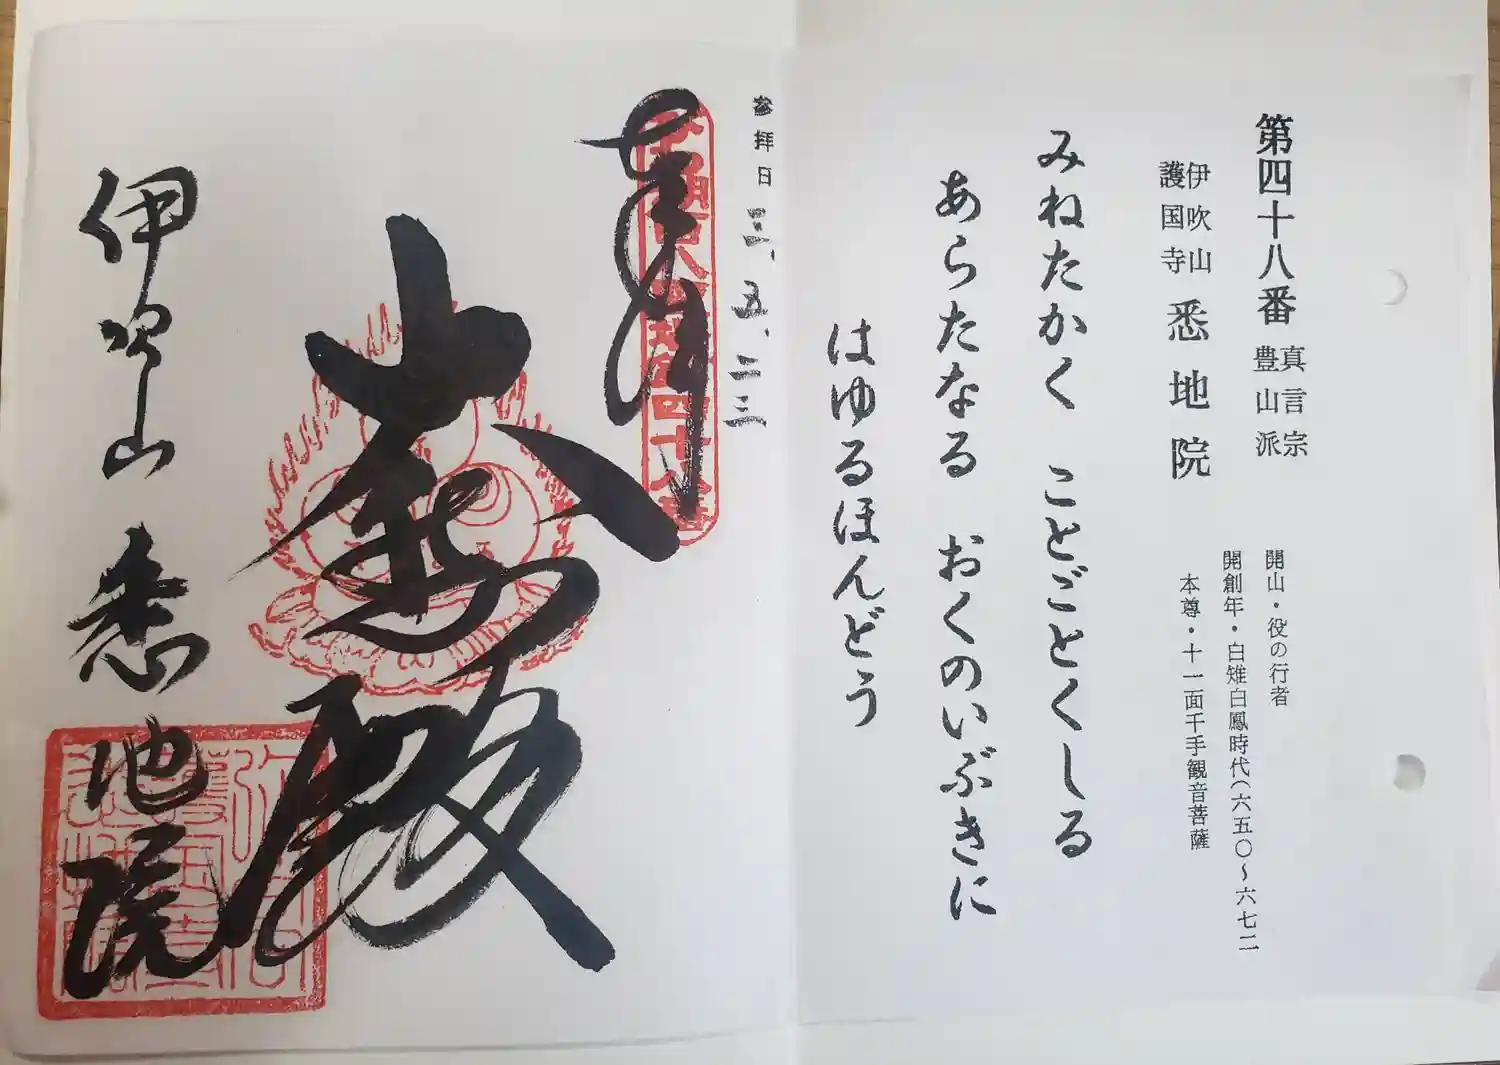 第四十八番 真言宗
豊山派
伊吹山
護国寺 悉地院
開山・役の行者
開創年・白雉白鳳時代(六五〇〜六七二
本尊・十一面千手観音菩薩
みねたかく ことごとくしる
あらたなる おくのいぶきに
はゆるほんどう
参拝日 三、五、二三
奉拝
大悲殿
伊吹山 悉地院